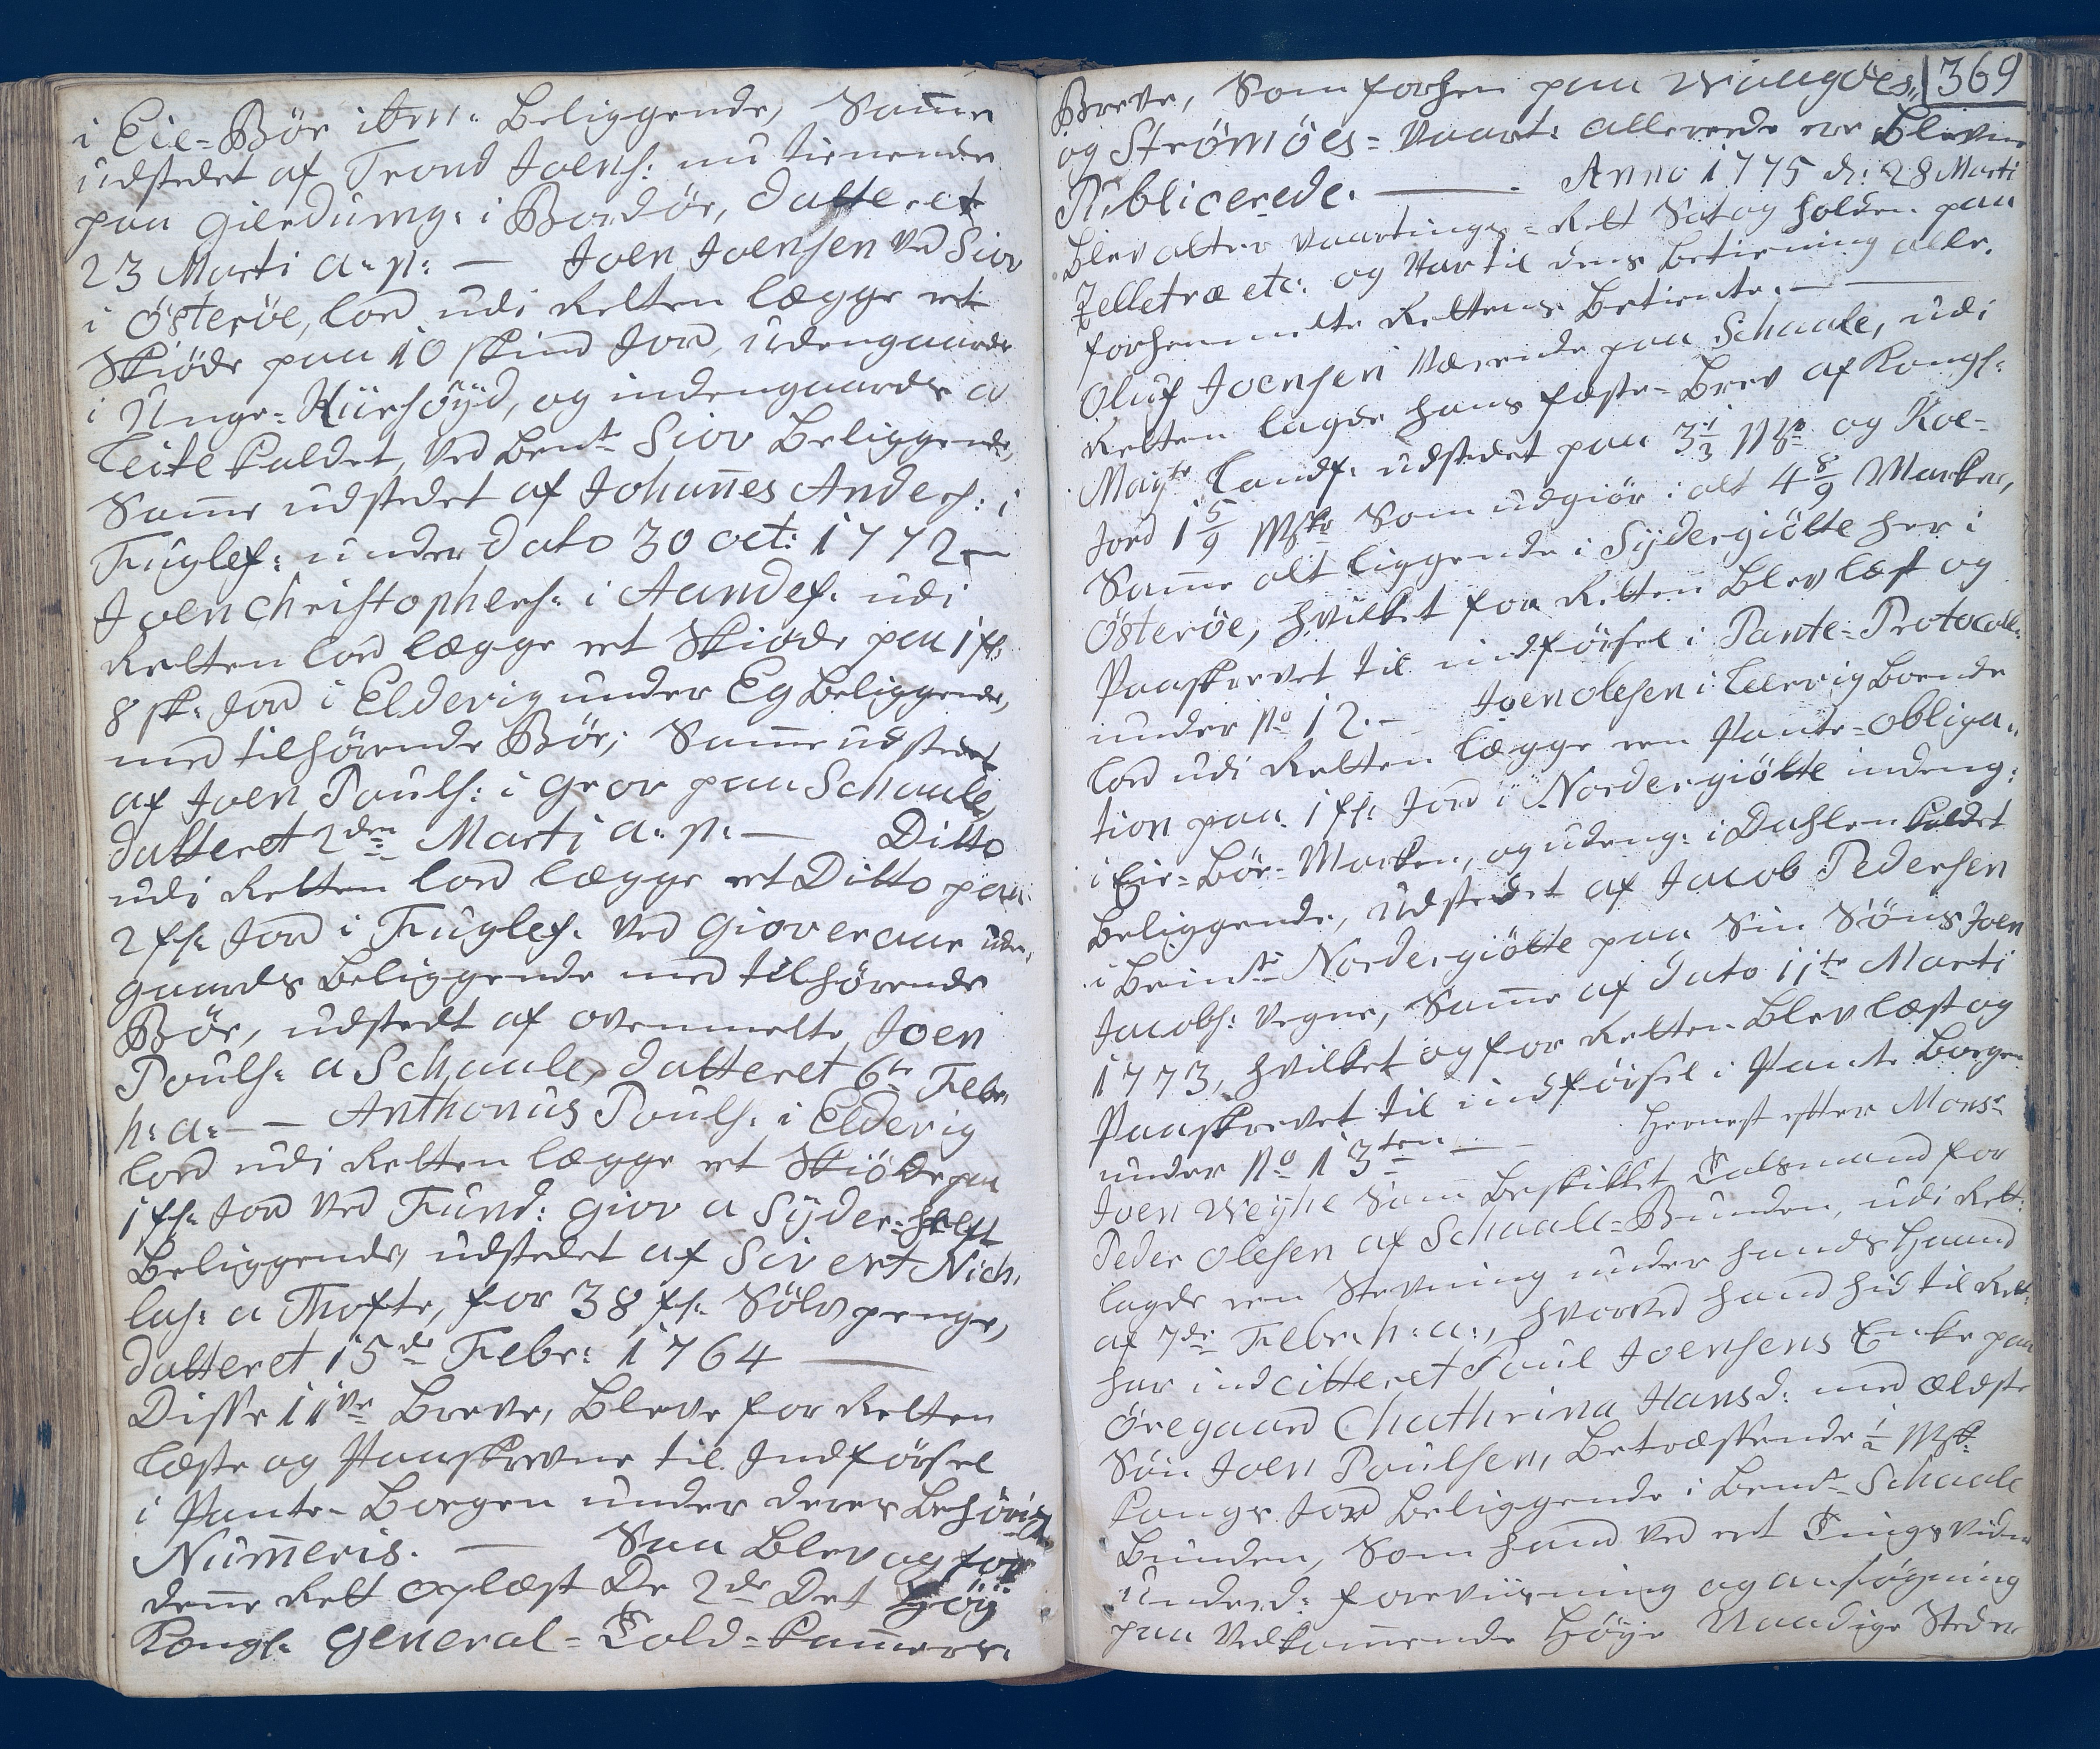 i Eie-Bör ibm: Beliggende, Samme
udstedet af Trond Joens: nu tienende
paa Gierdumg: i Bordöe, datteret
23 Marti a: p: — Joen Joensen ved Siov
i Österöe, lod udi Retten lægge et
Skiöde paa 10 skind Jord, udengaards
i Unge-Küesöÿd, og indengaards a
Leite kaldet, ved bemte Siov Beliggende,
Samme udstedet af Johannes Anders: i
Fuglef: under Dato 30 oct: 1772 —
Joen Christophers: i Aandef: udi
Retten lod lægge et Skiöde paa 1 fl:
8 sk: Jord i Elderig under Eg Beliggende,
med tilhörende Bör; Samme udstedet
af Joen Pouls: i Grov paa Schaale,
datteret 2den Marti a: p: — Ditto
udi Retten lod lægge et Ditto paa
2 fl: Jord i Fuglef: ved Gioveraae uden,
gaards Beliggende med tilhörende
Bör, udstedt af ovenmelte Joen
Pouls: a Schaale, datteret 6te Febr:
h: a: — Anthonius Pouls: i Elderig
lod udi Retten lægge et Skiöde paa
1 fl: Jord ved Fund: Giov a Sÿder-helft
Beliggende, udstedet af Sivert Nich,
las: a Thofte, for 38 fl: Sölv penge,
datteret 15de Febr: 1764 —
Disse 11ve Breve, bleve for Retten
læste og Paaskrevne til Indförsel
i Pante-Bogen under deres behörig
Numeris. — Saa blev og for
denne Rett oplæst De 2de Det Höÿ
Kongl: General-Told-Kammers:
369
Breve, Som forhen paa Waagöes,,
og Strömöes-Vaart: allerede ere blevne
Publicerede. — Anno 1775 d: 28 Marti
blev atter Vaartings-Rett Sat og holden paa
Zelletræ etc: og Var til dens Betiening alle
forhenmelte Rettens Betiente. —
Oluf Joensen Værende paa Schaale, udi
Retten lagde hans fæste-brev af Kongl:
Mayts Landf: udstedet paa 3 1/3 Mk og Koe-
Jord 1 5/9 Mk Som udgiör i alt 4 8/9 Marker,
Samme alt liggende i Sÿdergiötte her i
Österöe, hvilket for Retten blev læst og
Paaskrevet til indförsel i Pante-Protocoll:
under No 12. — Joen Olesen i Leervig Boende
lod udi Retten lægge een Pante-Obliga,,
tion paa 1 fl: Jord i Nordergiötte indeng:
i Eie-Bör-Marken, og udeng: i Dahlen kaldet
beliggende, udstedet af Jacob Pedersen
i bemte Nordergiötte paa Sin Söns Joen
Jacobs: Vegne, Samme af Dato 11te Marti
1773, hvilket og for Retten blev læst og
Paaskrevet til indförsel i Pante bogen
under No 13ten — Hernest efter Monsr
Joen Weÿhe Som beskikket Talsmand for
Peder Olesen af Schaale-Bunden, udi Rett:
lagde een Stevning under hands Haand
af 7de Febr: h: a:, hvorved hand hid til Rett:
har indcitteret Poul Joensens Enke paa
Öregaard Chathrina Hansd: med ældste
Sön Joen Poulsen, betræffende 1/2 Mk
Kongs Jord beliggende i bemte Schaale
Bunden, Som hand ved et Tingsvidne
Underd: foreviisning og ansögning
paa Vedkommende Höÿe Naadige Steder